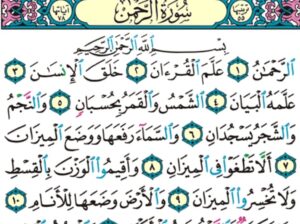 سُورَةُ الرَّحْمَٰن
بِسْمِ اللَّهِ الرَّحْمَٰنِ الرَّحِيمِ
الرَّحْمَٰنُ ١ عَلَّمَ الْقُرْءَانَ ٢ خَلَقَ الْإِنسَٰنَ ٣
عَلَّمَهُ الْبَيَانَ ٤ الشَّمْسُ وَالْقَمَرُ بِحُسْبَانٍ ٥ وَالنَّجْمُ
وَالشَّجَرُ يَسْجُدَانِ ٦ وَالسَّمَاءَ رَفَعَهَا وَوَضَعَ الْمِيزَانَ
٧ أَلَّا تَطْغَوْا فِي الْمِيزَانِ ٨ وَأَقِيمُوا الْوَزْنَ بِالْقِسْطِ
وَلَا تُخْسِرُوا الْمِيزَانَ ٩ وَالْأَرْضَ وَضَعَهَا لِلْأَنَامِ ١٠